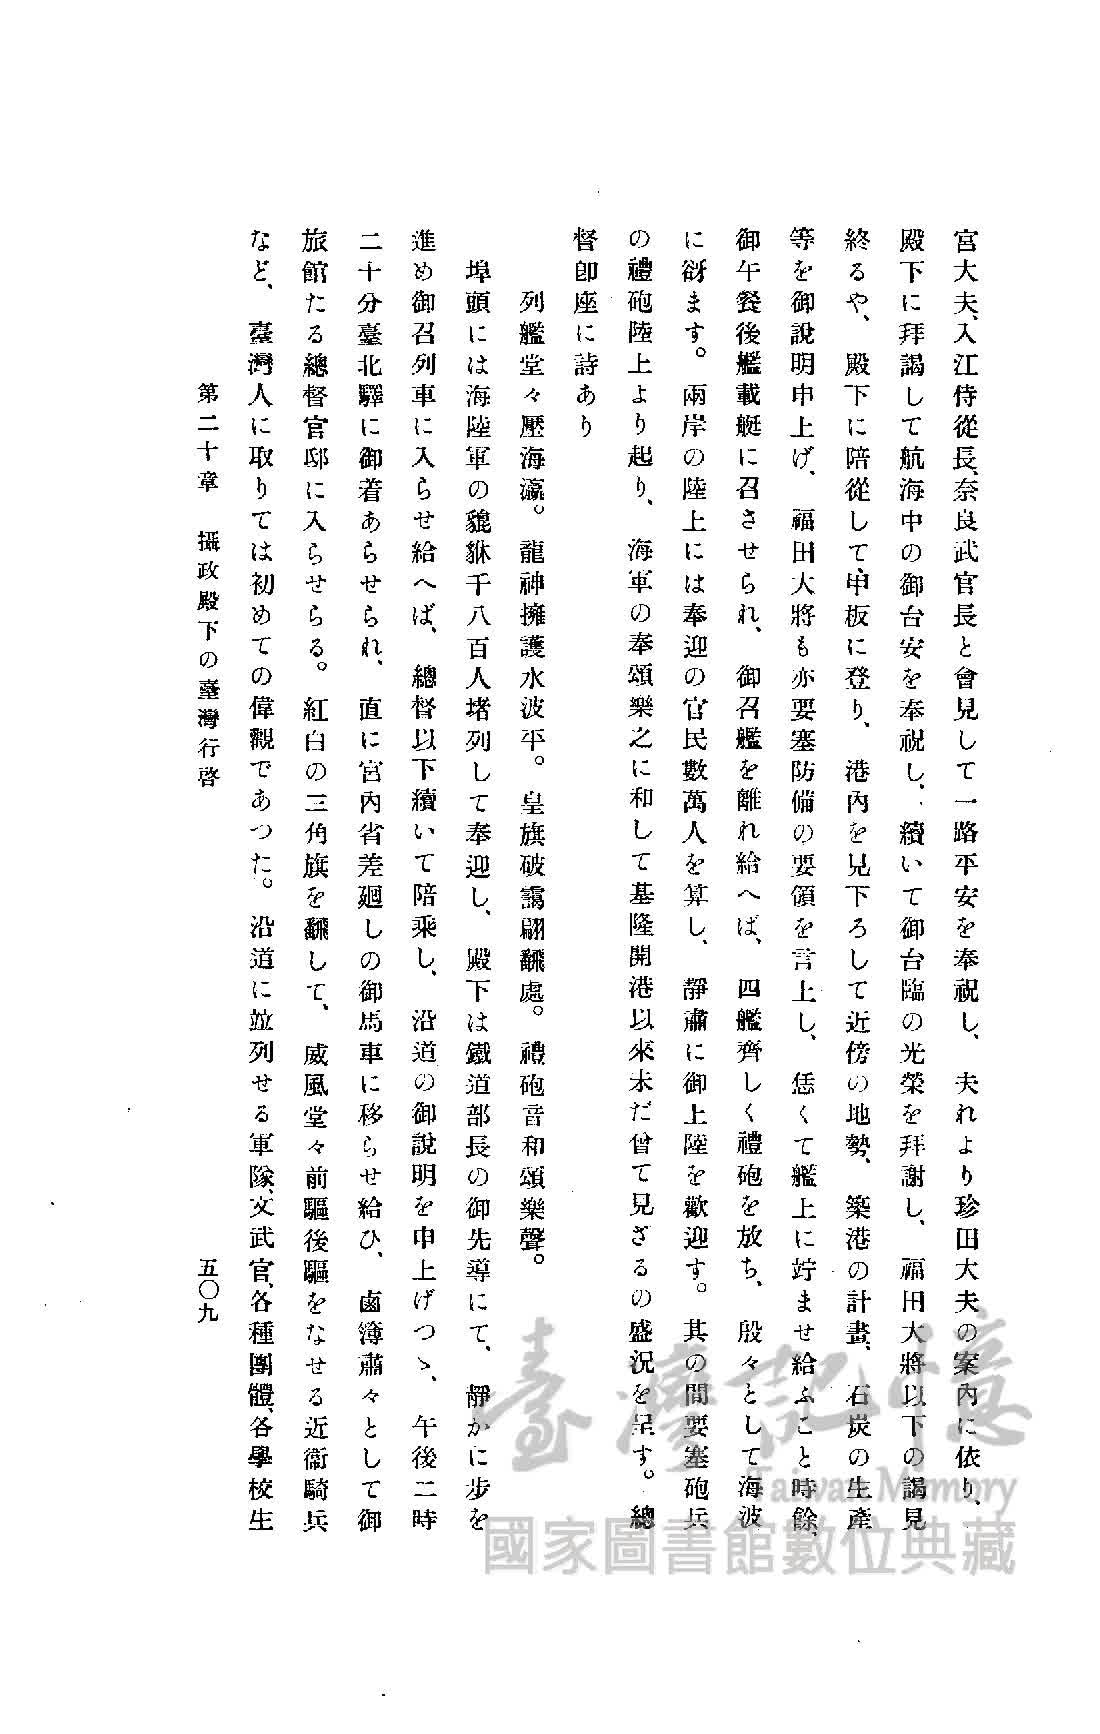 宮大夫、入江侍從長、奈良武官長と會見して一路平安を奉祝し、夫れより珍田大夫の案內に依り、
殿下に拜謁して航海中の御台安を奉祝し、續いて御台臨の光榮を拜謝し、福田大將以下の謁見
終るや、殿下に陪從して、甲板に登り、港內を見下ろして近傍の地勢、築港の計畫、石炭の生產
等を御說明申上げ、福田大將も亦要塞防備の要領を言上し、恁くて艦上に竚ませ給ふこと時餘、
御午餐後艦載艇に召させられ、御召艦を離れ給へば、四艦齊しく禮砲を放ち、殷々として海波
に谺ます。兩岸の陸上には奉迎の官民數萬人を算し、靜肅に御上陸を歡迎す。其の間要塞砲兵
の禮砲陸上より起り、海軍の奉頌樂之に和して基隆開港以來未だ曾て見ざるの盛況を呈す。總
督卽座に詩あり
列艦堂々壓海瀛。龍神擁護水波平。皇旗破靄翩飜處。禮砲音和頌樂聲。
埠頭には海陸軍の貔貅千八百人堵列して奉迎し、殿下は鐵道部長の御先導にて、靜かに步を
進め御召列車に入らせ給へば、總督以下續いて陪乘し、沿道の御說明を申上げつゝ、午後二時
二十分臺北驛に御着あらせられ、直に宮內省差廻しの御馬車に移らせ給ひ、鹵簿肅々として御
旅館たる總督官邸に入らせらる。紅白の三角旗を飜して、威風堂々前驅後驅をなせる近衞騎兵
など、臺灣人に取りては初めての偉觀であつた。沿道に竝列せる軍隊、文武官、各種團體、各學校生
第二十章 攝政殿下の臺灣行啓 五〇九
臺灣記憶
Taiwan Memory
國家圖書館數位典藏